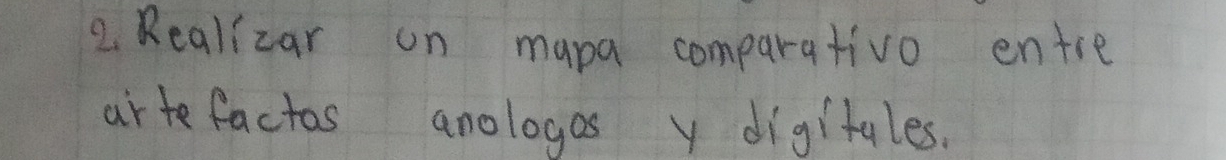 2. Realizar un mapa comparativo entre
artefactos anologos y digitales.